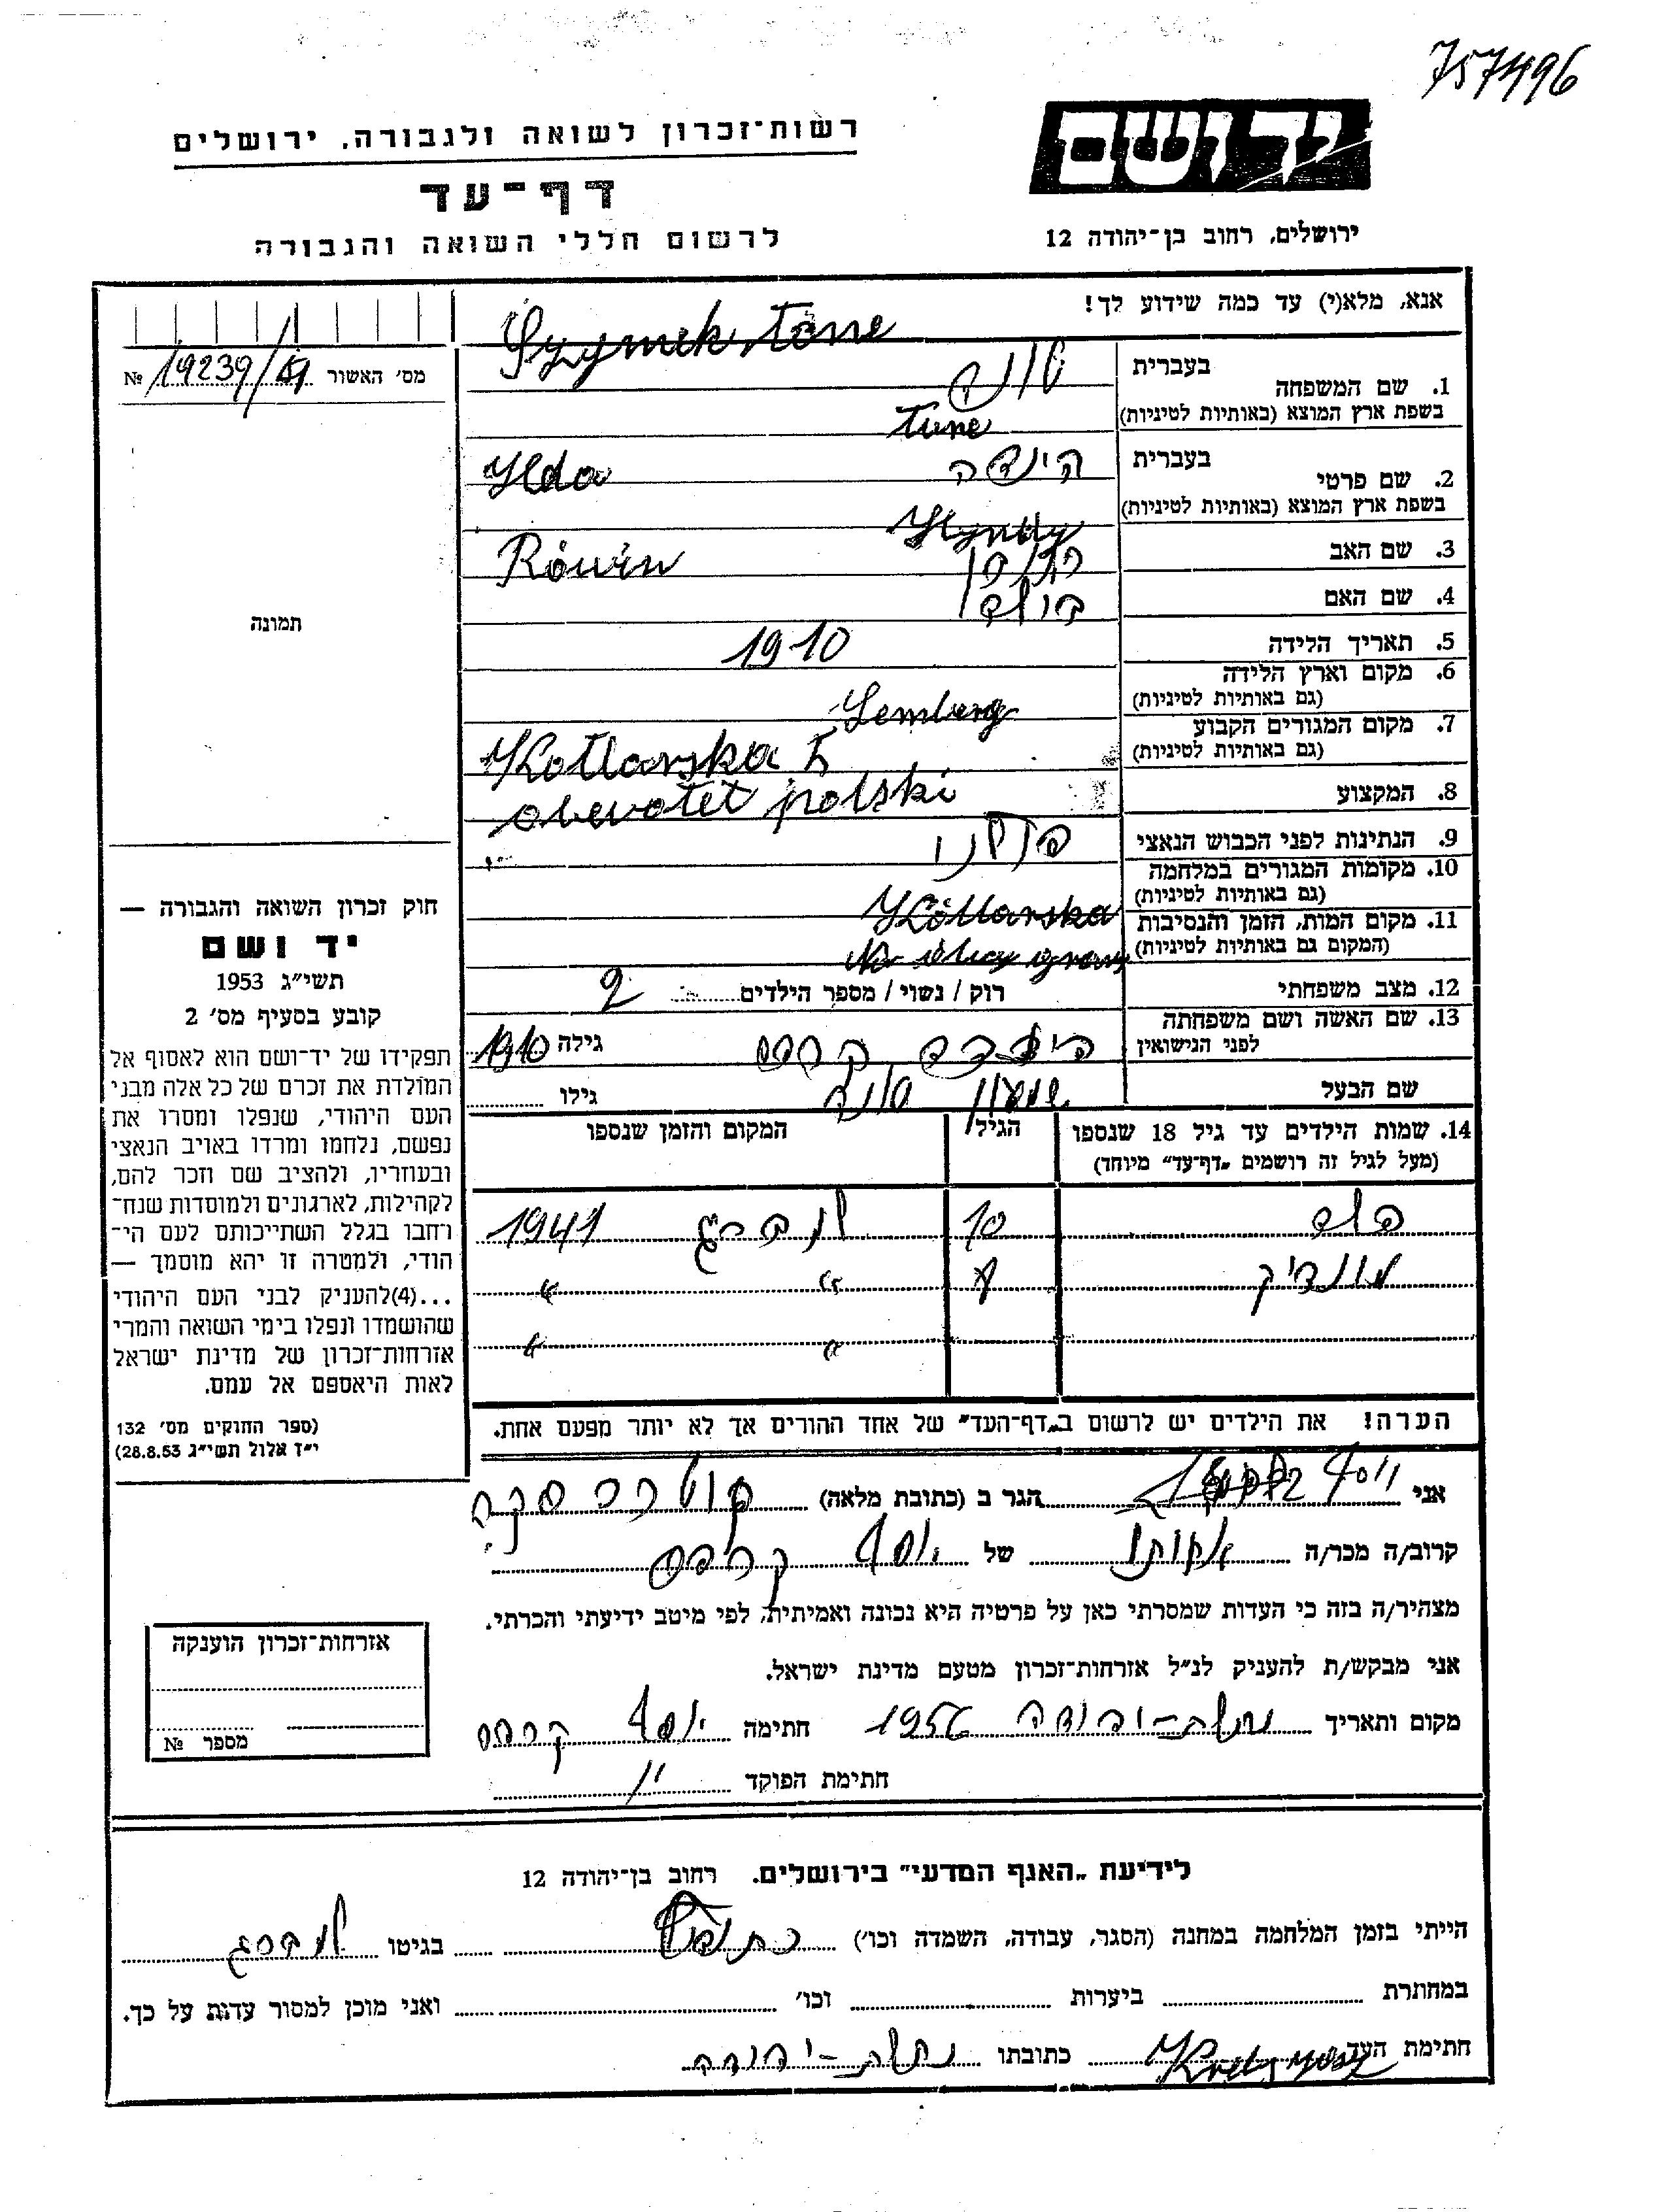 757496
יד ושם
רשות־זכרון לשואה ולגבורה, ירושלים
דף־עד
ירושלים, רחוב בן־יהודה 12
לרשום חללי השואה והגבורה
אנא, מלא(י) עד כמה שידוע לך!
מס׳ האשור 19239/ №
Szymek Tune
1. שם המשפחה
בעברית
טונה
בשפת ארץ המוצא (באותיות לטיניות)
Tune
2. שם פרטי
בעברית
הינדה
Hda
בשפת ארץ המוצא (באותיות לטיניות)
3. שם האב
Rówin
4. שם האם
5. תאריך הלידה
1910
6. מקום וארץ הלידה
(גם באותיות לטיניות)
Lemberg
7. מקום המגורים הקבוע
(גם באותיות לטיניות)
Kotlarska 5
8. המקצוע
polski
9. הנתינות לפני הכבוש הנאצי
פולני
10. מקומות המגורים במלחמה
(גם באותיות לטיניות)
Kotlarska
11. מקום המות, הזמן והנסיבות
(המקום גם באותיות לטיניות)
12. מצב משפחתי
רוק / נשוי / מספר הילדים 2
13. שם האשה ושם משפחתה
לפני הנישואין
גילה 1910
שם הבעל
שמעון טונה
גילו
תמונה
חוק זכרון השואה והגבורה —
יד ושם
תשי״ג 1953
קובע בסעיף מס׳ 2
תפקידו של יד־ושם הוא לאסוף אל
המולדת את זכרם של כל אלה מבני
העם היהודי, שנפלו ומסרו את
נפשם, נלחמו ומרדו באויב הנאצי
ובעוזריו, ולהציב שם וזכר להם,
לקהילות, לארגונים ולמוסדות שנח־
רבו בגלל השתייכותם לעם הי־
הודי, ולמטרה זו יהא מוסמך —
...(4) להעניק לבני העם היהודי
שהושמדו ונפלו בימי השואה והמרי
אזרחות־זכרון של מדינת ישראל
לאות היאספם אל עמם.
(ספר החוקים מס׳ 132
י״ז אלול תשי״ג 28.8.53)
14. שמות הילדים עד גיל 18 שנספו
(מעל לגיל זה רושמים „דף־עד״ מיוחד)
הגיל
המקום והזמן שנספו
10 למברג 1941
מונדיק
הערה! את הילדים יש לרשום ב„דף־העד״ של אחד ההורים אך לא יותר מפעם אחת.
אני יוסף הגר ב (כתובת מלאה)
קרוב/ה מכר/ה אחותו של יוסף
מצהיר/ה בזה כי העדות שמסרתי כאן על פרטיה היא נכונה ואמיתית, לפי מיטב ידיעתי והכרתי.
אני מבקש/ת להעניק לנ״ל אזרחות־זכרון מטעם מדינת ישראל.
מקום ותאריך נחלת־יהודה 1956 חתימה יוסף
חתימת הפוקד
אזרחות־זכרון הוענקה
מספר №
לידיעת „האגף המדעי״ בירושלים. רחוב בן־יהודה 12
הייתי בזמן המלחמה במחנה (הסגר, עבודה, השמדה וכו׳) בגיטו למברג
במחתרת ביערות וכו׳ ואני מוכן למסור עדות על כך.
חתימת העד כתובתו נחלת־יהודה